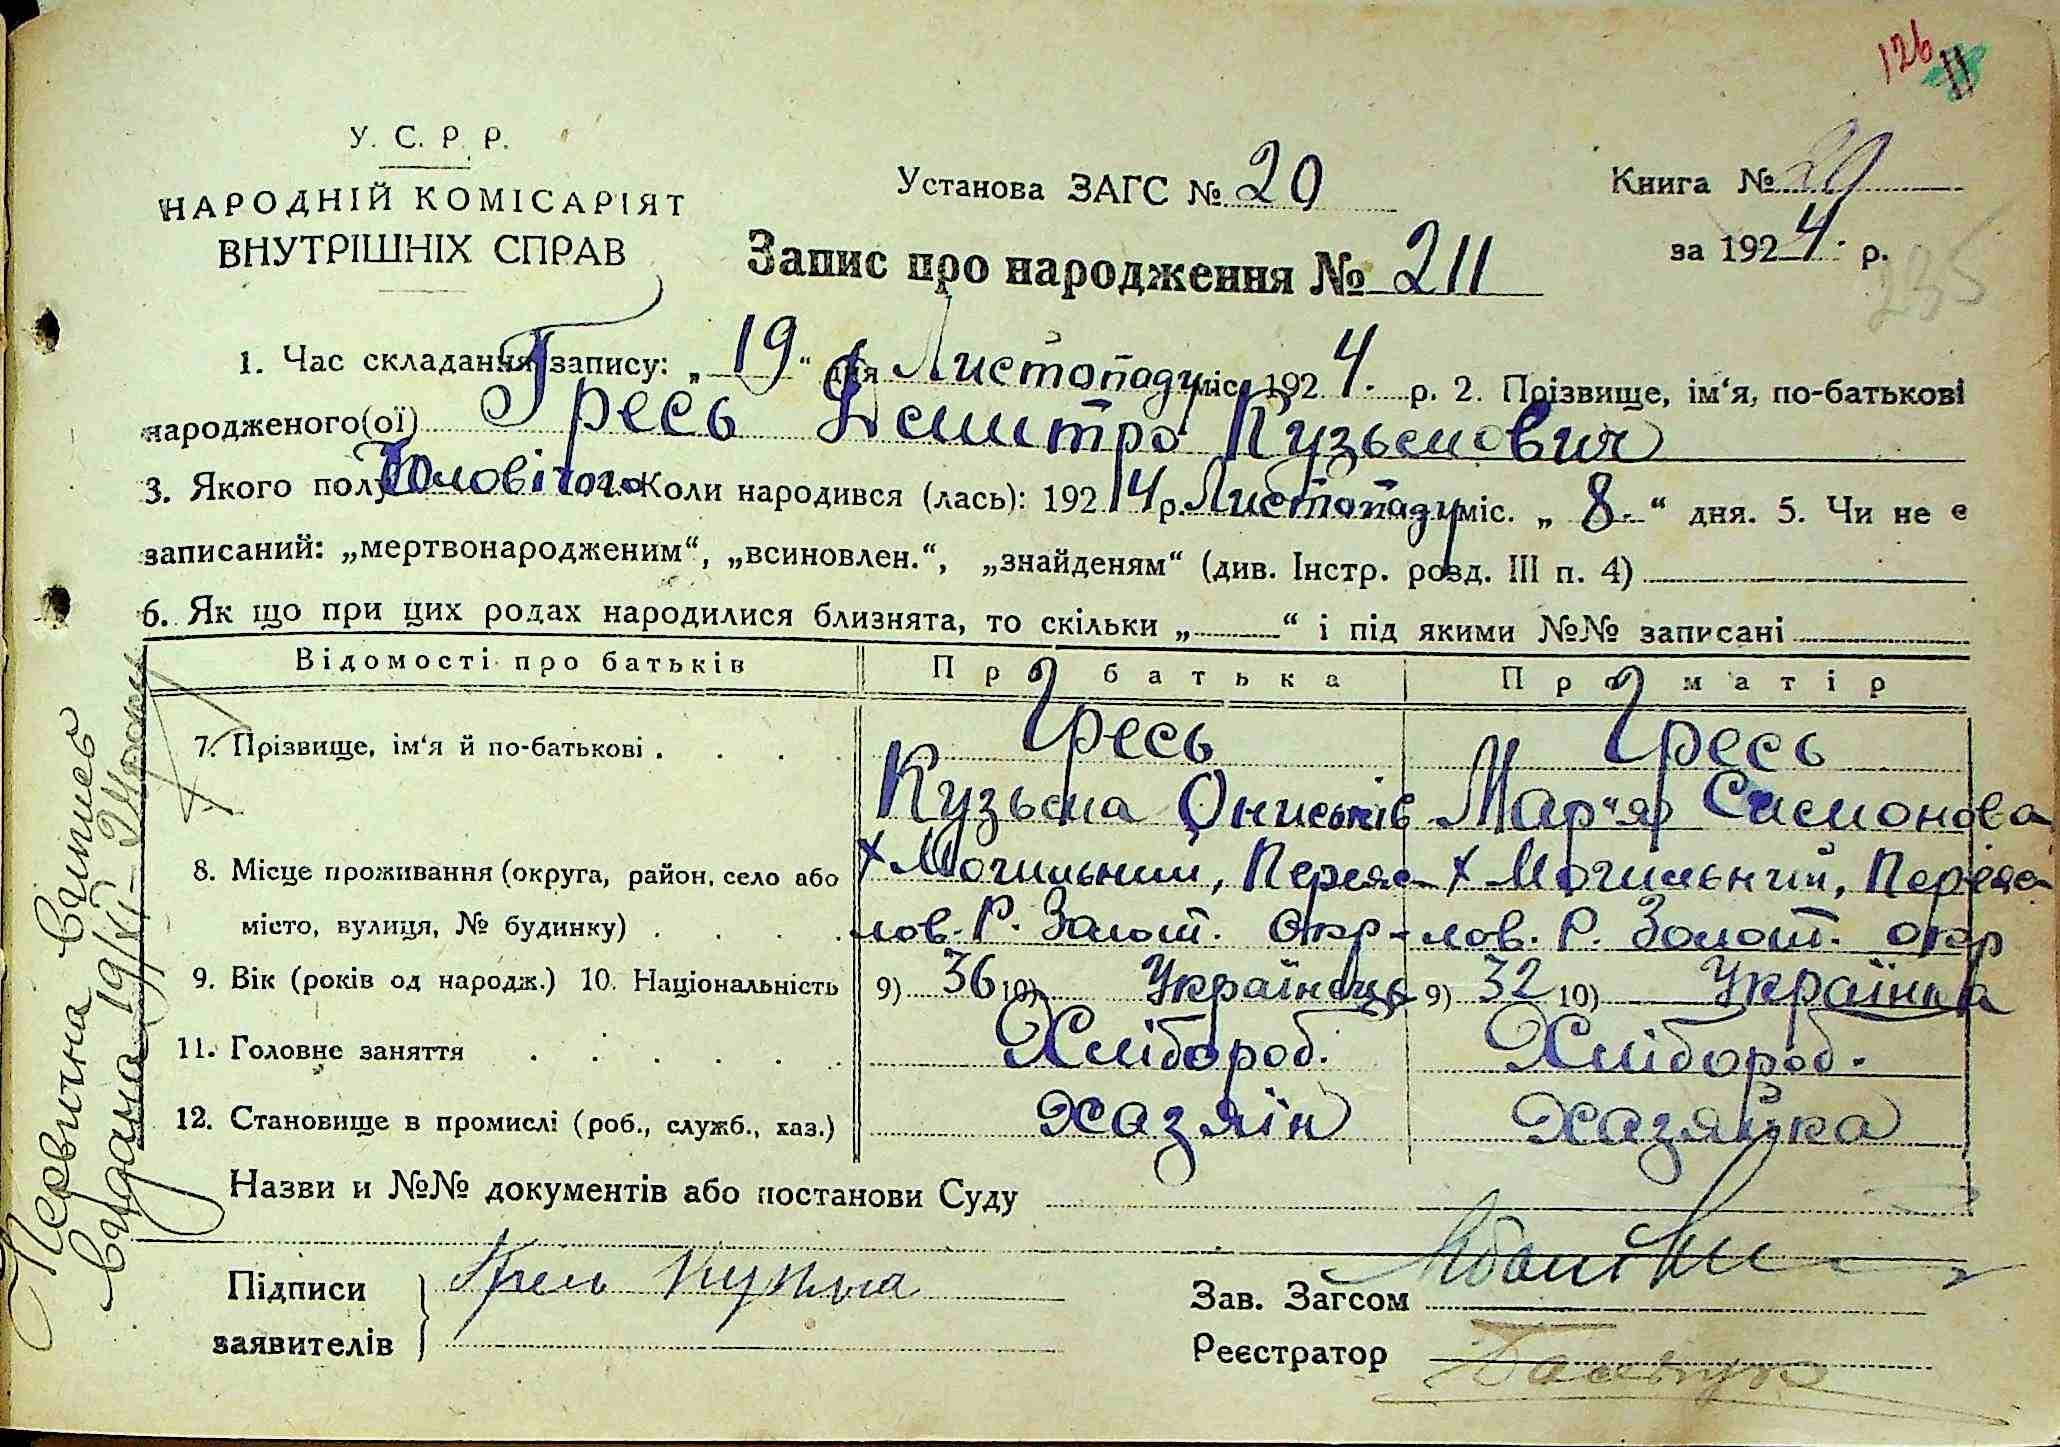 126
11
У. С. Р. Р.
НАРОДНІЙ КОМІСАРІЯТ
ВНУТРІШНІХ СПРАВ
Установа ЗАГС № 20
Книга № 20
за 1924 р.
235
Запис про народження № 211
1. Час складання запису: „19“ дня Листопаду міс. 1924. р. 2. Прізвище, ім‘я, по-батькові
народженого(ої) Гресь Дмитро Кузьмович
3. Якого полу Чоловічого Коли народився (лась): 1924 р. Листопаду міс. „8.“ дня. 5. Чи не є
записаний: „мертвонародженим“, „всиновлен.“, „знайденям“ (див. Інстр. розд. III п. 4)
6. Як що при цих родах народилися близнята, то скільки „ “ і під якими №№ записані
Відомості про батьків Про батька Про матір
7. Прізвище, ім‘я й по-батькові . . . . Гресь Гресь
Кузьма Онисьмів Мар‘я Симонова
8. Місце проживання (округа, район, село або х Могильний, Переяс- х Могильний, Переяс-
місто, вулиця, № будинку) . . . . лов. Р. Золот. Окр- лов. Р. Золот. окр
9. Вік (років од народж.) 10. Національність 9) 36 10) Українець 9) 32 10) Українка
11. Головне заняття . . . . . . Хлібороб. Хлібороб.
12. Становище в промислі (роб., служб., хаз.) хазяїн хазяйка
Назви и №№ документів або постанови Суду
Підписи
заявителів
Гресь Кузьма
Зав. Загсом
Реєстратор
Первична випись
видана 19/XI-24 року